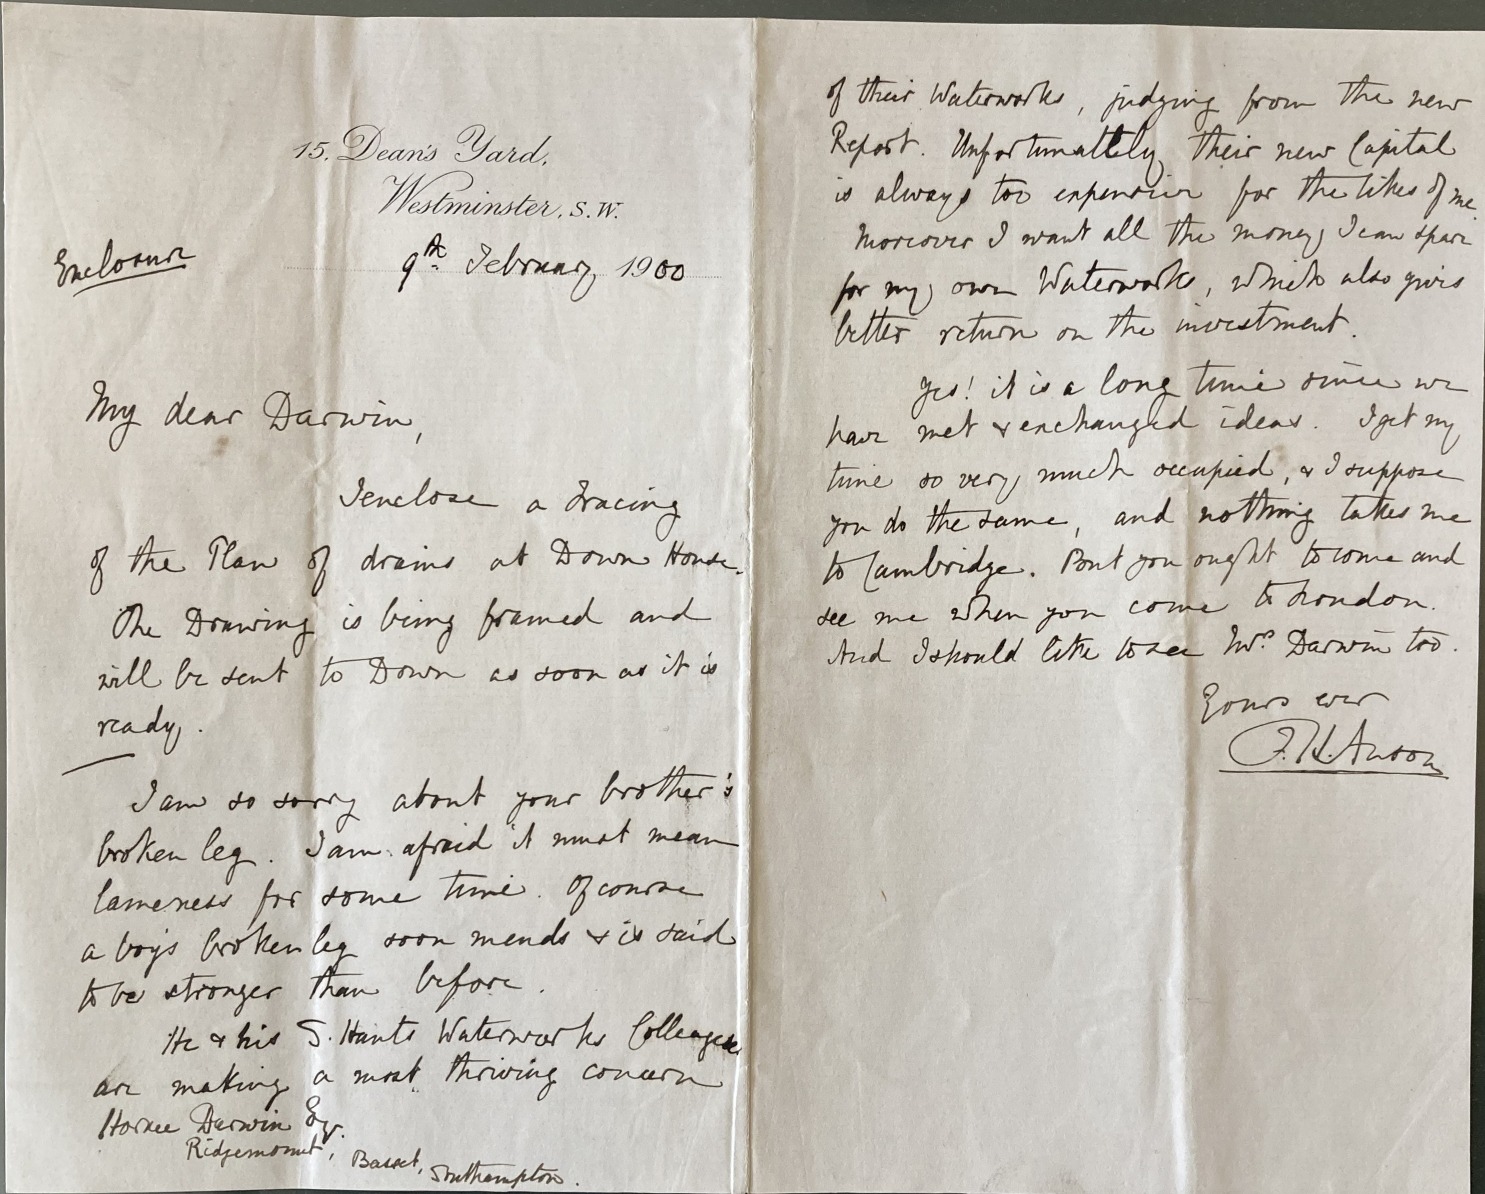 15, Dean's Yard,
Westminster, S.W.
Enclosure
9th February 1900
My dear Darwin,
I enclose a Tracing
of the Plan of drains at Down House.
The Drawing is being framed and
will be sent to Down as soon as it is
ready.
I am so sorry about your brother's
broken leg. I am afraid it must mean
lameness for some time. Of course
a boy's broken leg soon mends & is said
to be stronger than before.
He & his S. Hants Waterworks Colleagues
are making a most thriving concern
Horace Darwin Esq.
Ridgemount, Basset, Southampton.
of their Waterworks, judging from the new
Report. Unfortunattely their new Capital
is always too expensive for the likes of me.
Moreover I want all the money I can spare
for my own Waterworks, which also gives
better return on the investment.
Yes! it is a long time since we
have met & exchanged ideas. I get my
time so very much occupied, & I suppose
you do the same, and nothing takes me
to Cambridge. But you ought to come and
see me when you come to London.
And I should like to see Mrs. Darwin too.
Yours ever
F.H. Anson